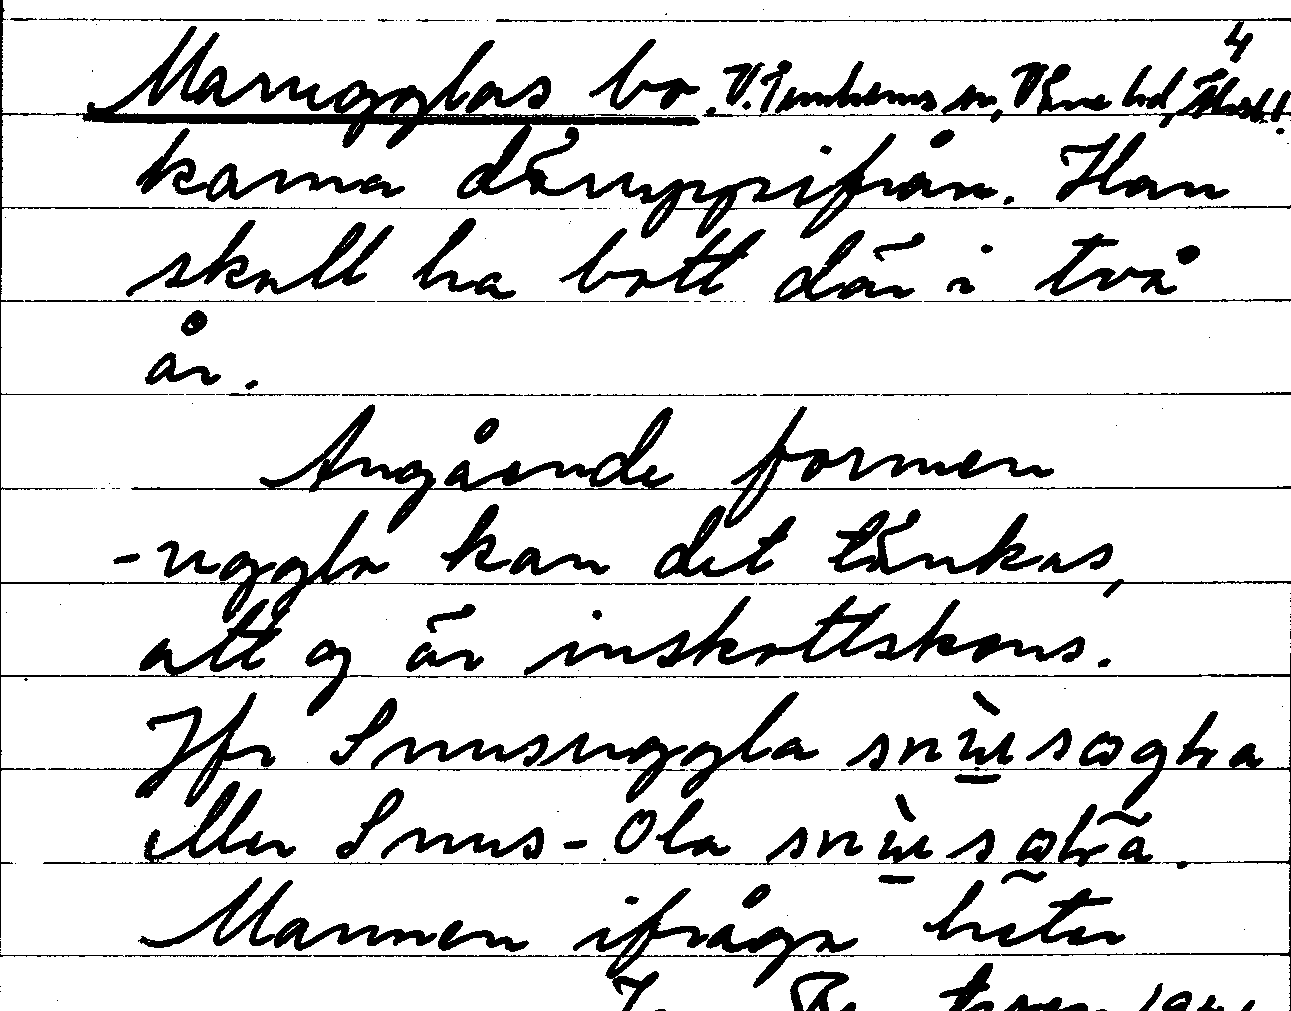 4
Marugglas bo. V. Tunhems sn, Väne hd, Älvsb. l.
karna däruppifrån. Han
skall ha bott där i två
år.
Angående formen
-uggla kan det tänkas,
att g är inskottskons.
Jfr Snusuggla
eller Snus-Ola
Mannen ifråga heter